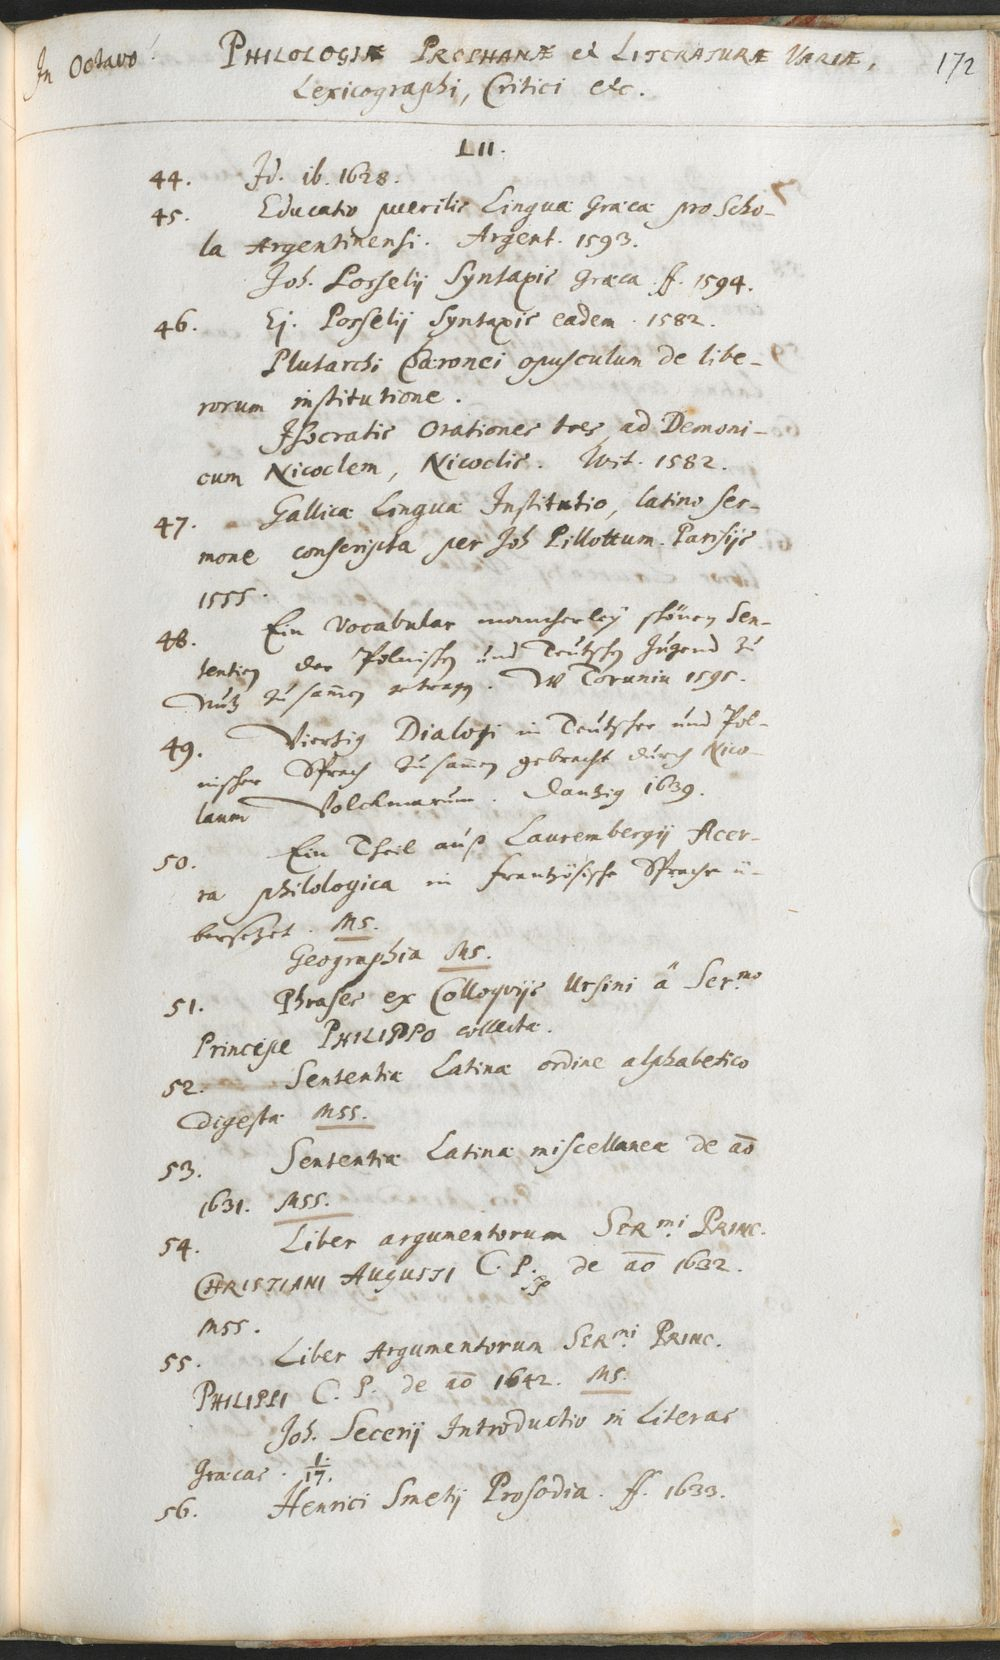 In Octavo
PHILOLOGIÆ PROPHANÆ et LITERATURÆ VARIÆ,
172
Lexicographi, Critici etc.
LII.
44. Id. ib. 1628.
45. Educatio puerilis Linguæ Græcæ pro Scho-
la Argentinensi. Argent. 1593.
Joh. Posselij Syntaxis Græca. ff. 1594.
46. Ej. Posselij Syntaxis eadem. 1582.
Plutarchi Chæronei opusculum de libe-
rorum institutione.
Isocratis Orationes tres, ad Demoni-
cum Nicoclem, Nicoclis. Wit. 1582.
47. Gallicæ Linguæ Institutio, latino ser-
mone conscripta per Joh Pillottum. Parisijs
1555.
48. Ein Vocabular mancherley schönen Sen-
tentien der Polnischen und Teutschen Jugend zu
Nutz zusam̄en getragen. W Toruniu 1595.
49. Viertzig Dialogi in Teutscher und Pol-
nischer Sprach zusam̄en gebracht durch Nico-
laum Volckmarum. Dantzig 1639.
50. Ein Theil auß Laurembergij Acer-
ra philologica in frantzösische Sprache ü-
bersetzet. MS.
Geographia MS.
51. Phrases ex Colloquijs Ursini â Ser.mo
Principe PHILIPPO collectæ.
52. Sententiæ Latinæ ordine alphabetico
digestæ MSS.
53. Sententiæ Latinæ miscellaneæ de aō
1631. MSS.
54. Liber argumentorum SER.mi PRINC.
CHRISTIANI AUGUSTI C. P. de aō 1632.
MSS.
55. Liber Argumentorum SER.mi PRINC.
PHILIPPI C. P. de aō 1642. MS.
Joh. Secerij Introductio in Literas
Græcas. 1/17.
56. Henrici Smetij Prosodia. ff. 1633.